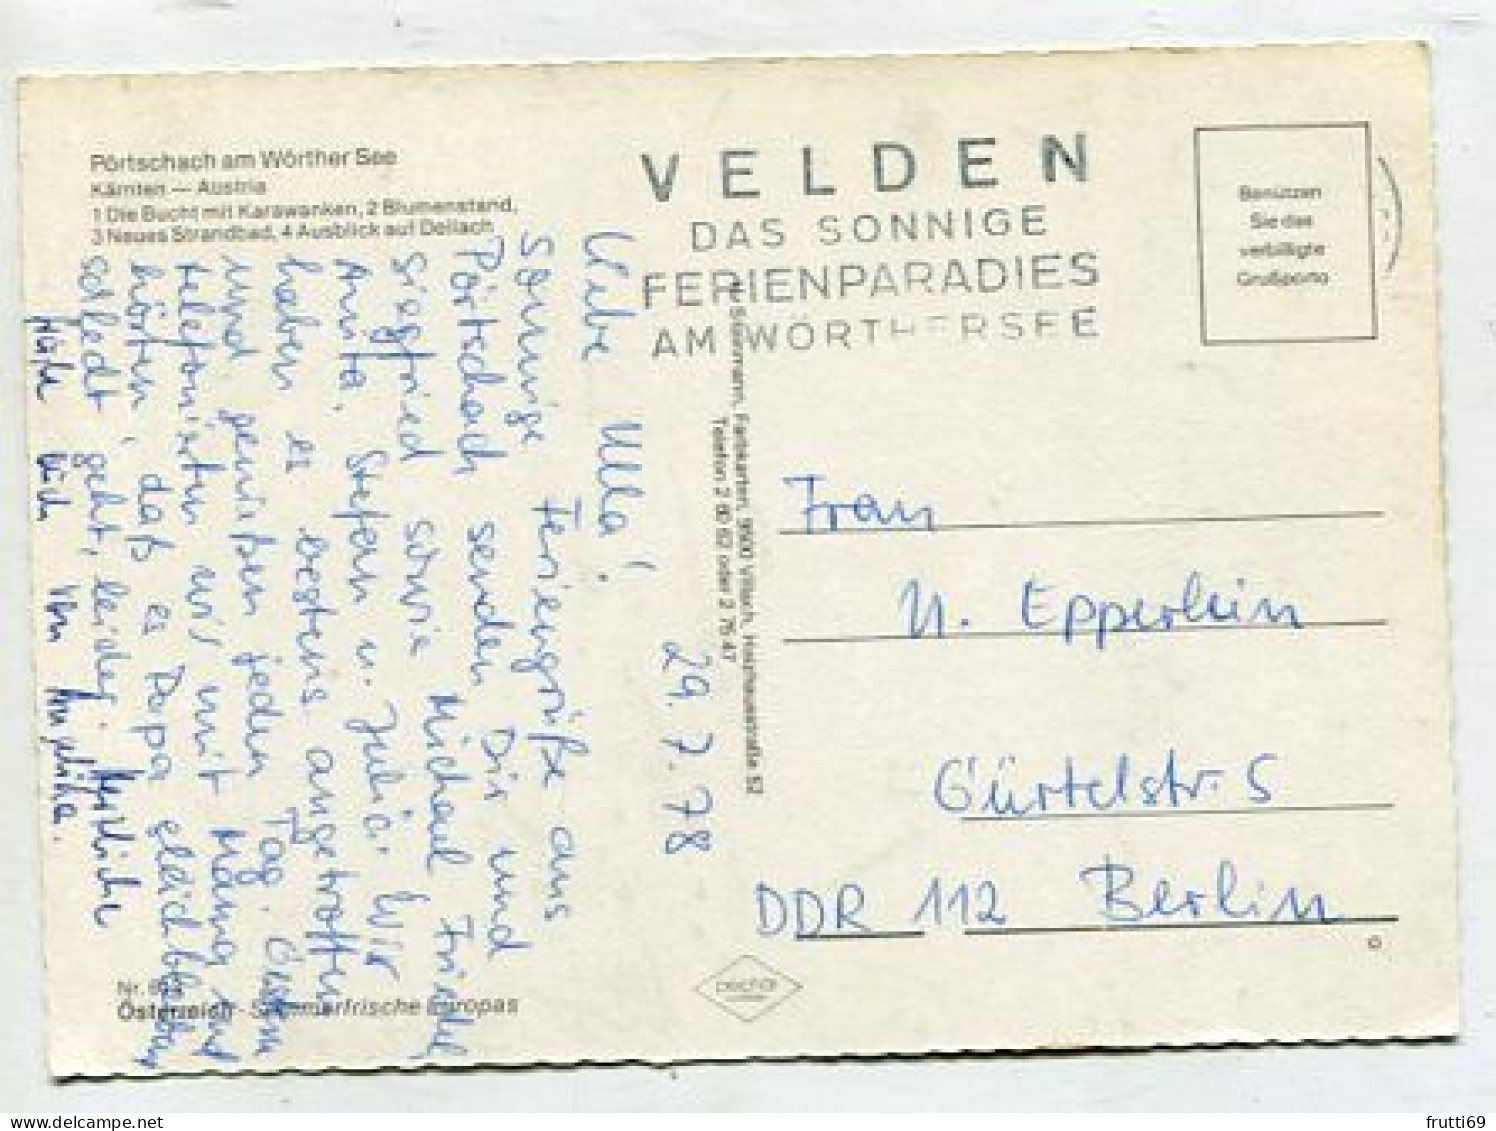 Pörtschach am Wörther See
Kärnten — Austria
1 Die Bucht mit Karawanken, 2 Blumenstand,
3 Neues Strandbad, 4 Ausblick auf Dellach
VELDEN
DAS SONNIGE
FERIENPARADIES
AM WÖRTHERSEE
Benützen
Sie das
verbilligte
Großporto
29.7.78
Liebe Ulla!
Sonnige Feriengrüße aus
Pörtschach senden Dir und
Siegfried sowie Michael Friedel,
Anita, Stefan u. Julia. Wir
haben es bestens angetroffen
und genießen jeden Tag. Gestern
telefonierten wir mit Mama und
hörten, daß es Papa gleichbleibend
schlecht geht, leider. Herzliche
Grüße auch von Angelika.
Farbkarten, 9500 Villach, Hausstraße 52
Telefon 2 80 62 oder 2 75 47
Frau
U. Epperlein
Gürtelstr. 5
DDR 112 Berlin
Nr.
Österreich - Sommerfrische Europas
frutti69
delcampe.net